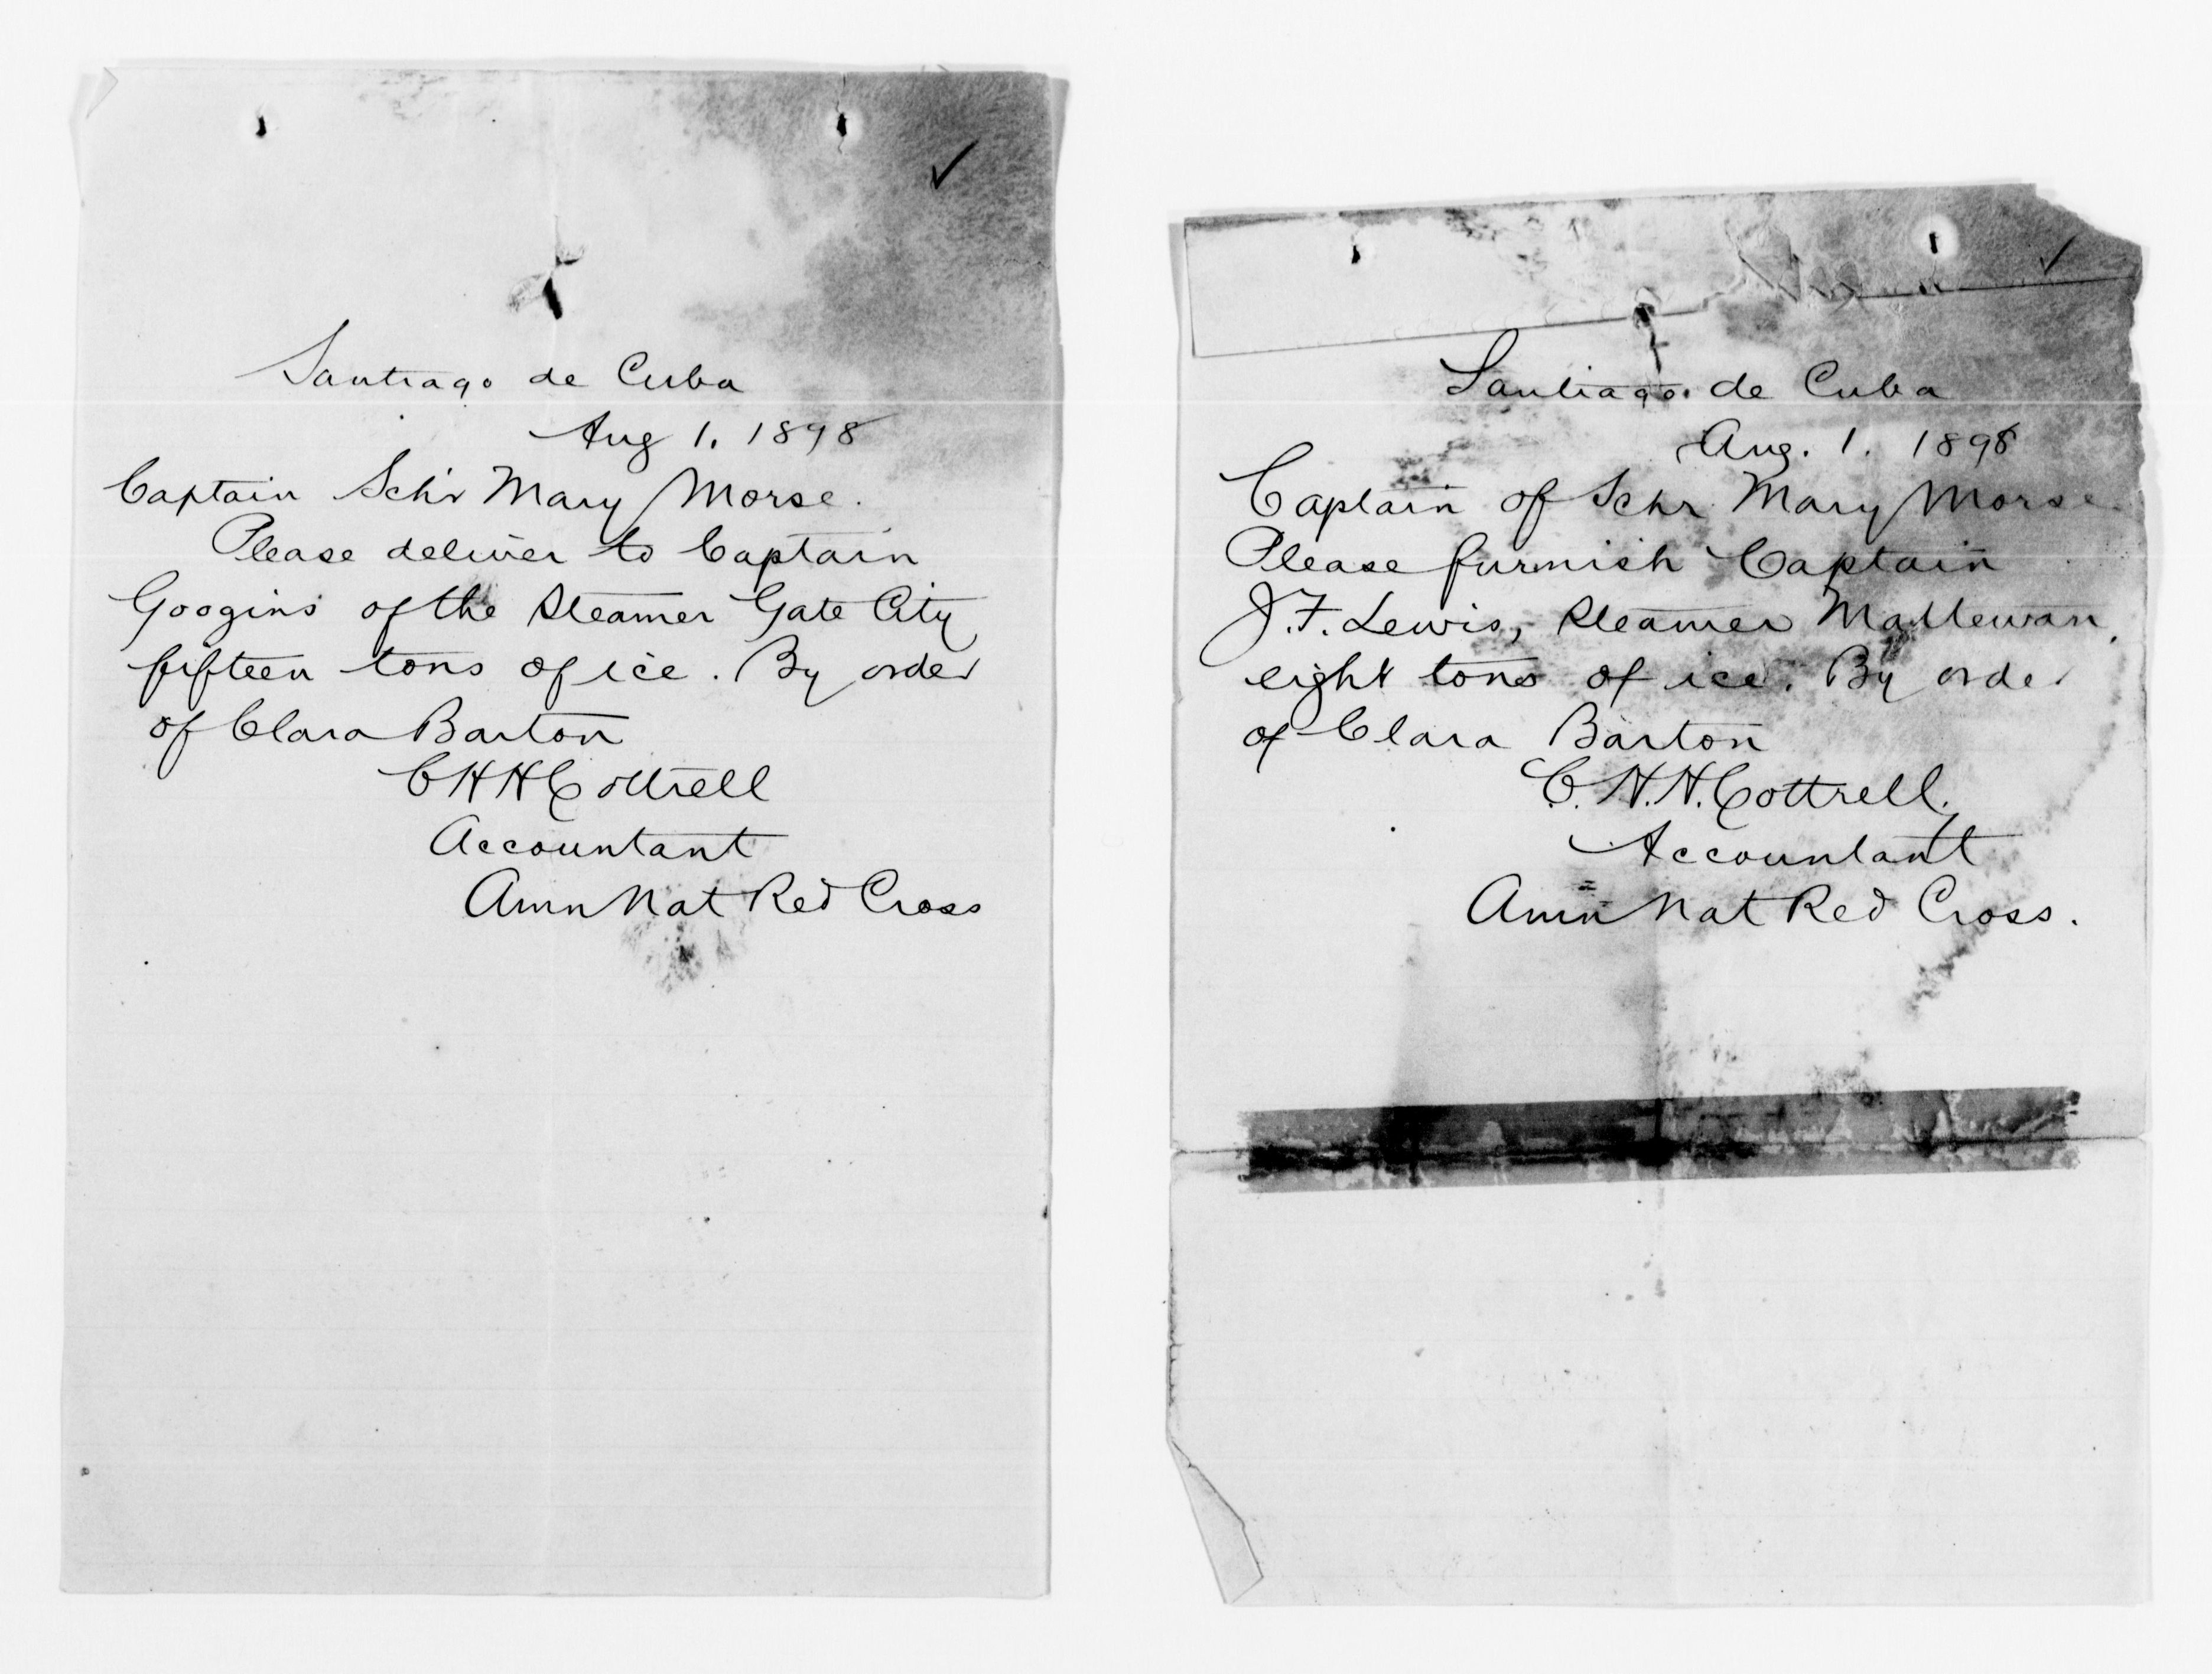 Santiago de Cuba
Aug 1. 1898
Captain Schr Mary Morse.
Please deliver to Captain
Googins of the Steamer Gate City
fifteen tons of ice. By order
of Clara Barton
C H H Cottrell
Accountant
Amn Nat Red Cross
Santiago de Cuba
Aug. 1. 1898
Captain of Schr Mary Morse
Please furnish Captain
J. F. Lewis, Steamer Mattewan,
eight tons of ice. By order
of Clara Barton
C. H. H. Cottrell.
Accountant
Amn Nat Red Cross.